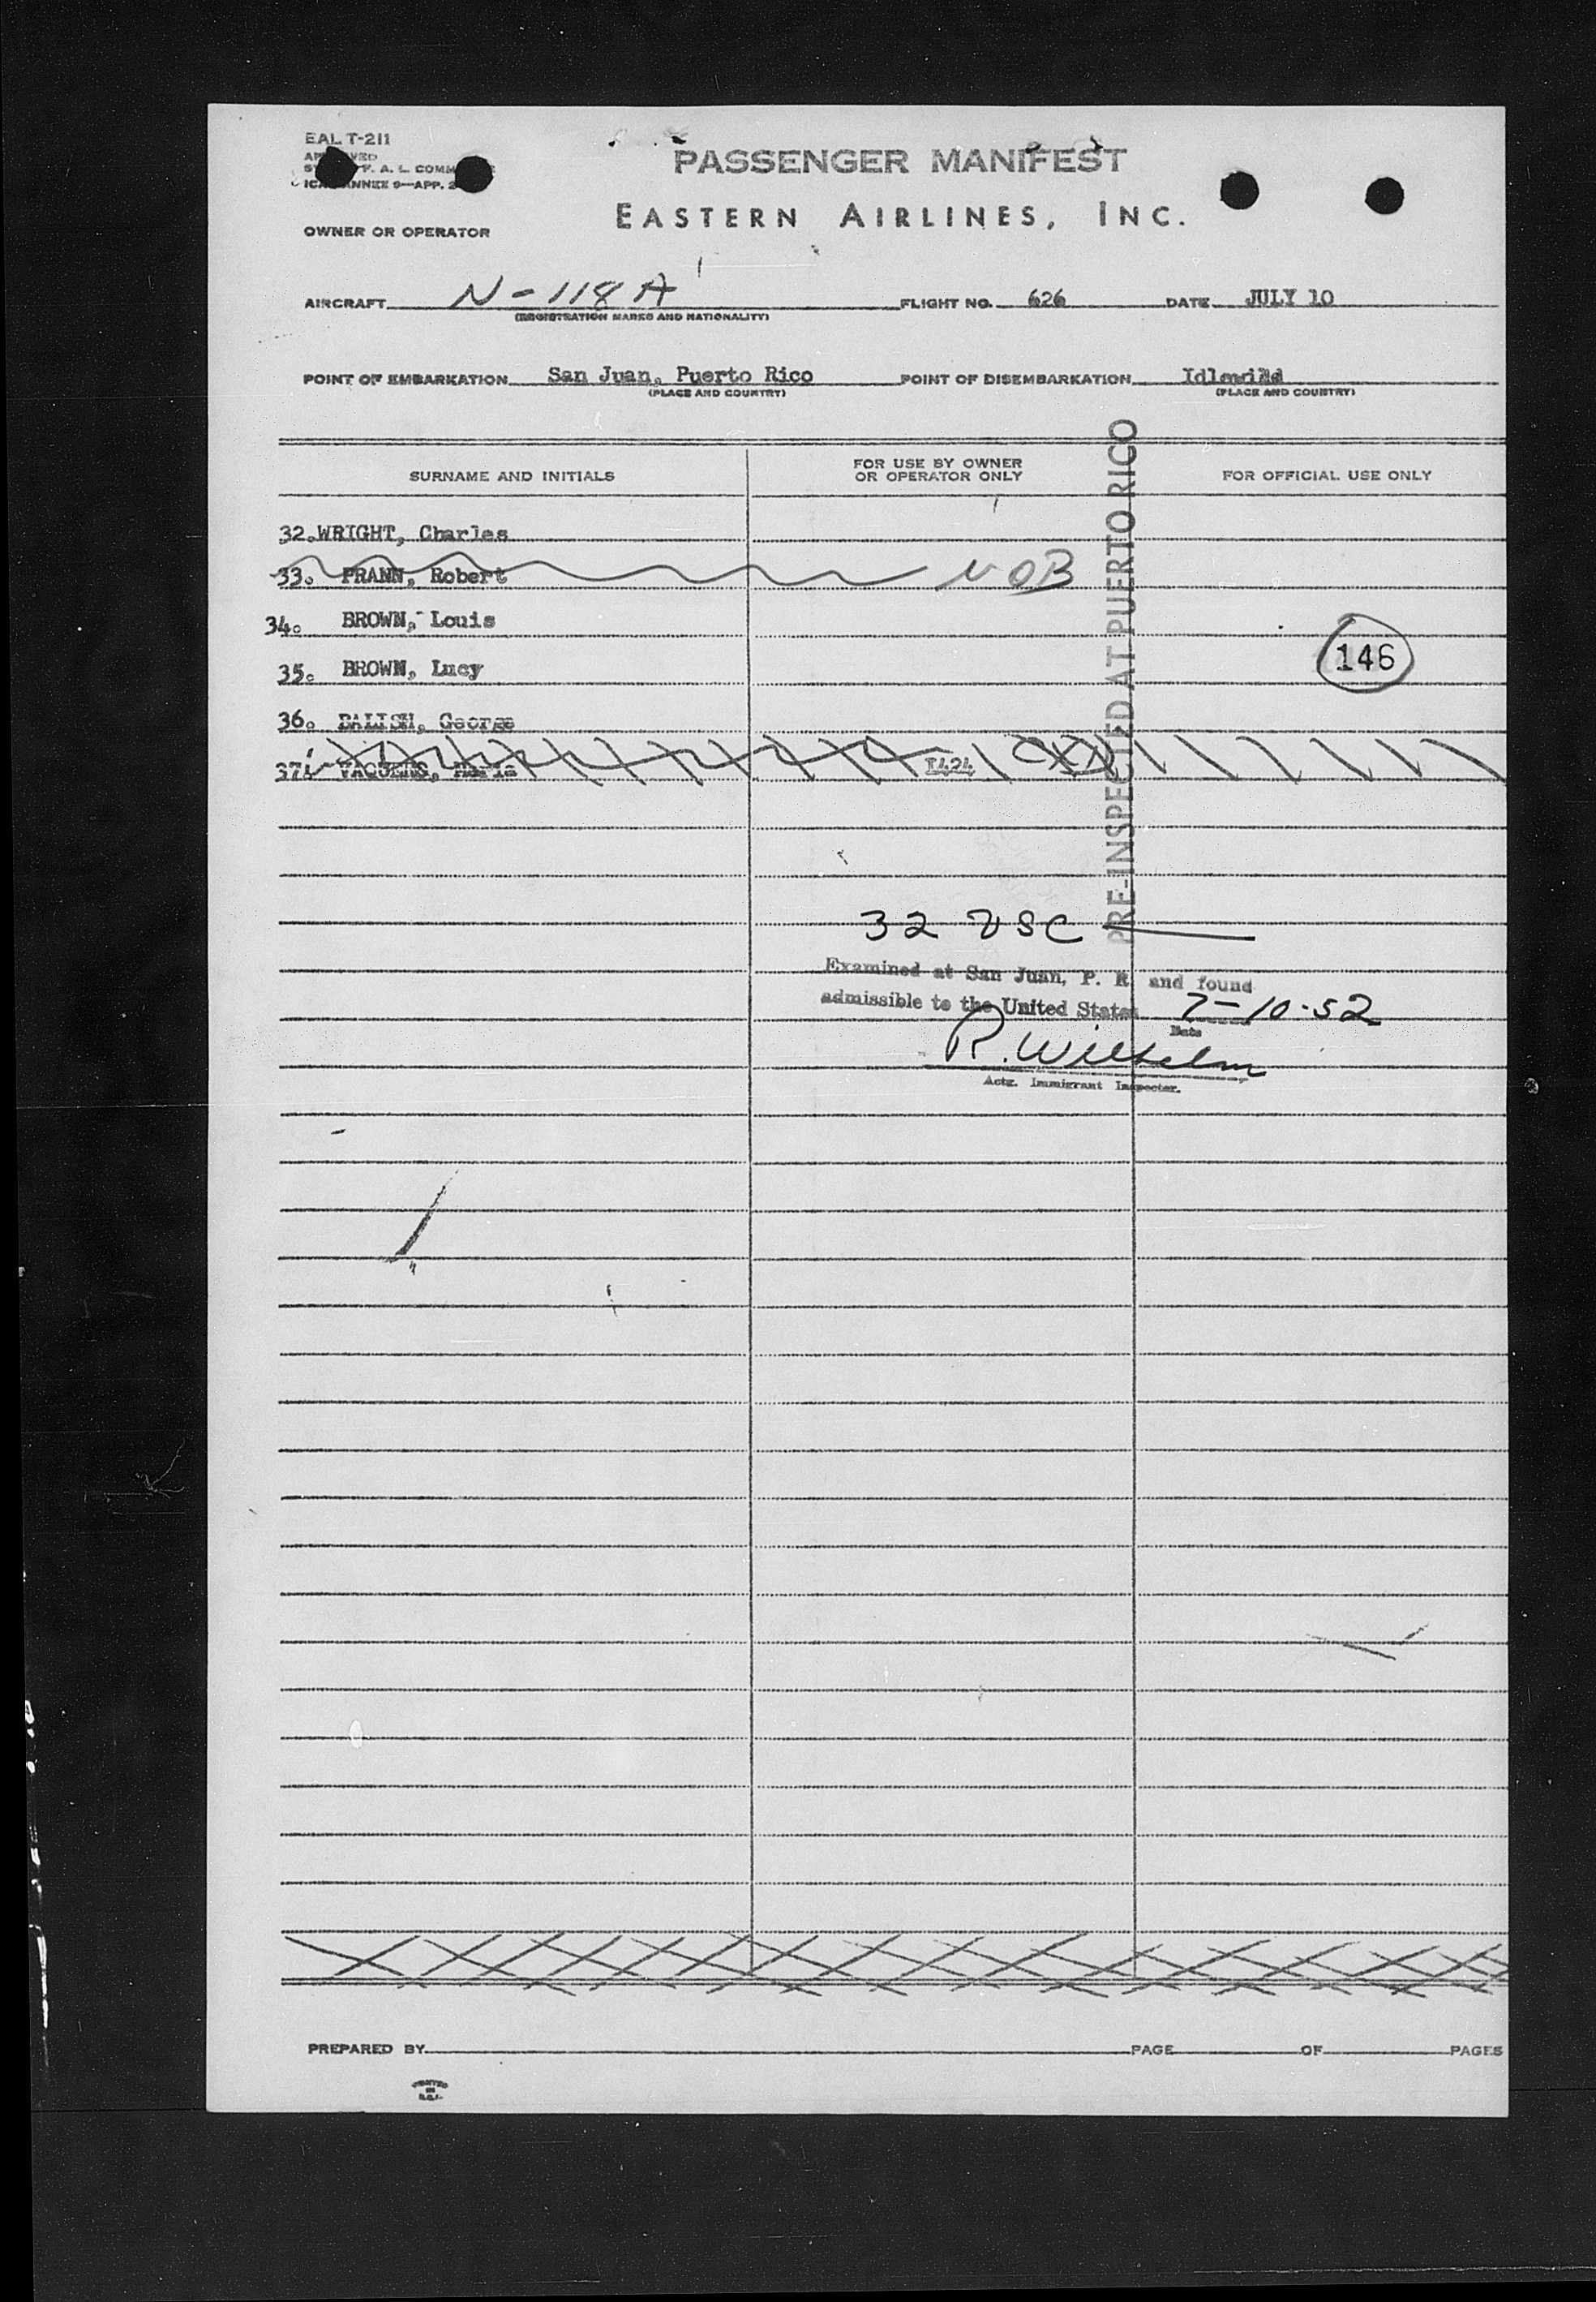 EAL T-211
PASSENGER MANIFEST
F. A. L. COMM
9—APP. 2
EASTERN AIRLINES, INC.
OWNER OR OPERATOR
AIRCRAFT N-118A FLIGHT NO. 626 DATE JULY 10
(REGISTRATION MARKS AND NATIONALITY)
POINT OF EMBARKATION San Juan, Puerto Rico POINT OF DISEMBARKATION Idlewild
(PLACE AND COUNTRY) (PLACE AND COUNTRY)
SURNAME AND INITIALS FOR USE BY OWNER OR OPERATOR ONLY FOR OFFICIAL USE ONLY
32. WRIGHT, Charles
33. FRANN, Robert NOB
34. BROWN, Louis
35. BROWN, Lucy
146
36. BALISH, George
37. 1424
PRE-INSPECTED AT PUERTO RICO
32 USC
Examined at San Juan, P. R. and found
admissible to the United States 7-10-52
Date
R. Wilhelm
Actg. Immigrant Inspector.
PREPARED BY PAGE OF PAGES
PRINTED
IN
U.S.A.